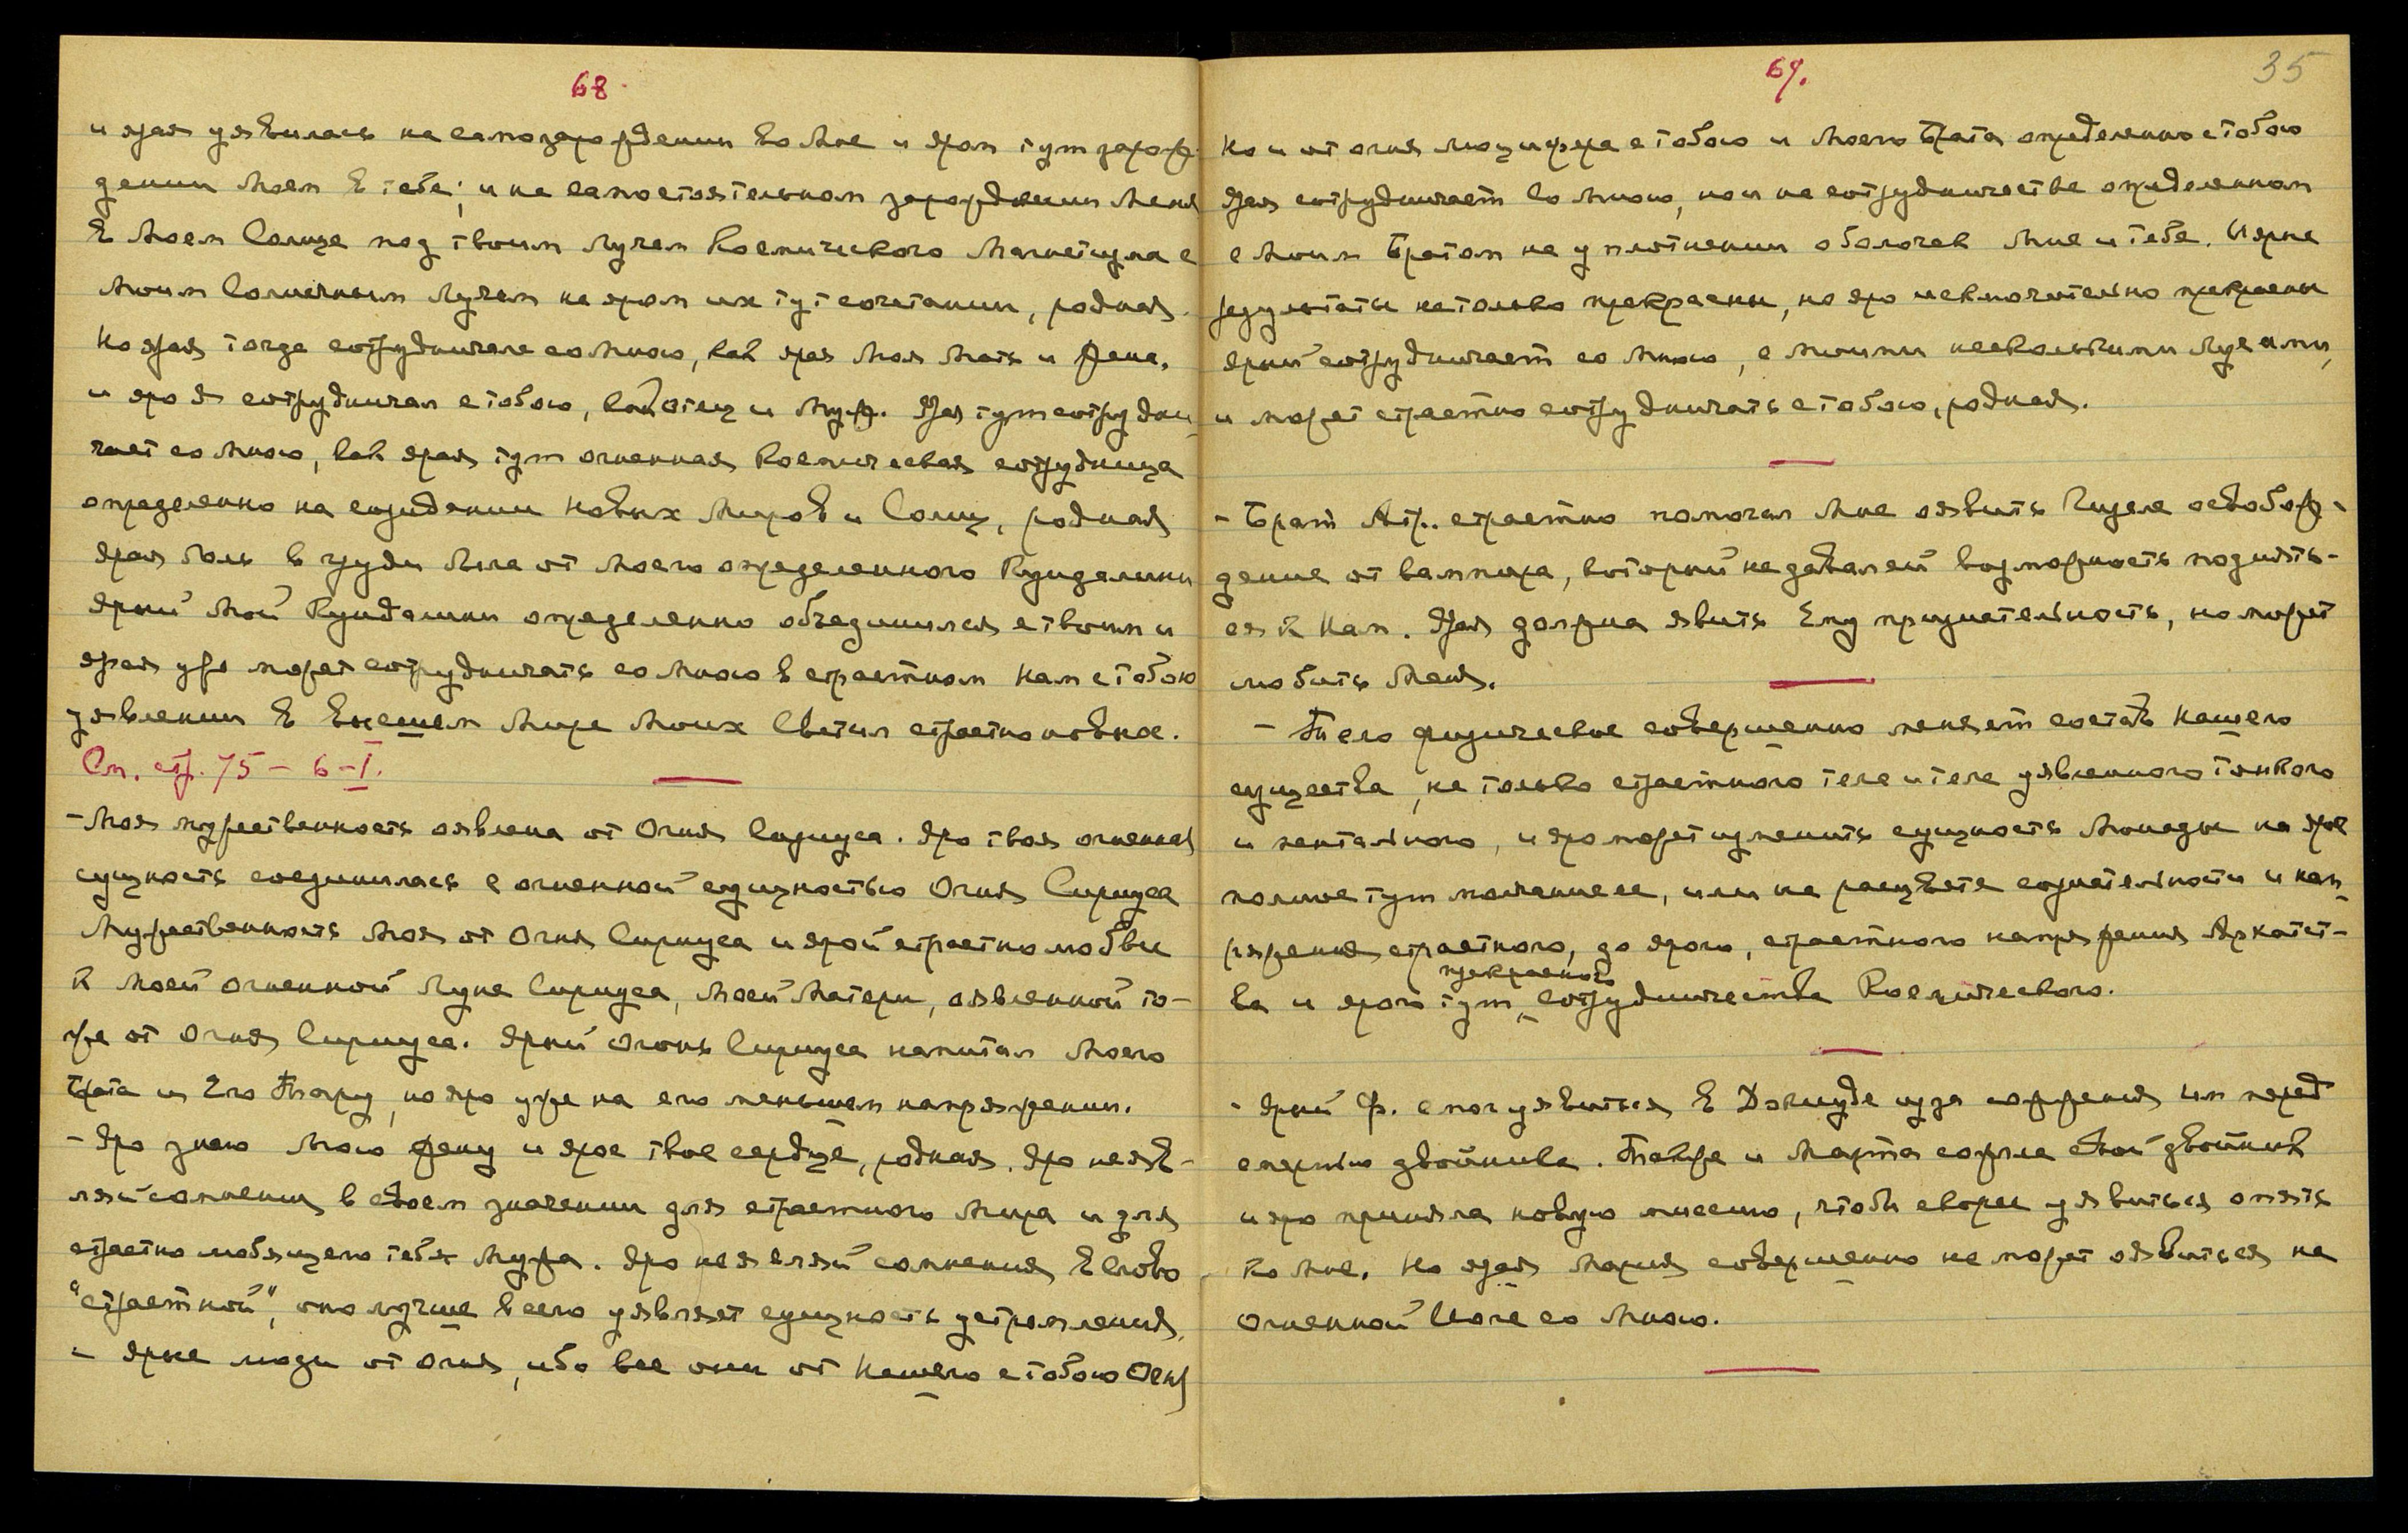 68.
и ярая уявилась на самозарождении во Мне и яром тут зарож-
дении Моем в тебе; и на самостоятельном зарождении Меня
в Моем Солнце под твоим Лучем Космического Магнетизма с
Моим Солнечным Лучем на яром их тут сочетании, родная.
Но ярая тогда сотрудничала со Мною, как ярая Моя Мать и Жена,
и яро Я сотрудничал с тобою, как Отец и Муж. Ярая тут сотрудни-
чает со Мною, как ярая тут огненная Космическая сотрудница
определенно на созидании Новых Миров и Солнц, родная
Ярая боль в груди была от Моего определенного Кундалини
Ярый Мой Кундалини определенно объединился с твоим и
ярая уже может сотрудничать со Мною в страстном Нам с тобою
уявлении в Высшем Мире Моих Светил страстно новное.
См. стр. 75 – 6 – I.
- Моя мужественность оявлена от Огня Сириуса. Яро твоя огненная
сущность соединилась с огненной сущностью Огня Сириуса
Мужественность Моя от Огня Сириуса и ярой страстно любви
к Моей огненной Луне Сириуса, Моей Матери, оявленной то-
же от Огня Сириуса. Ярый Огонь Сириуса напитал Моего
Брата и Его Тару, но яро уже на его меньшем напряжении.
- Яро знаю Мою Жену и ярое твое сердце, родная. Яро не яв-
ляй сомнения в своем значении для страстного Мира и для
страстно любящего тебя Мужа. Яро не являй сомнения в слово
"страстной", оно лучше всего уявляет сущность устремления.
- Ярые люди от Огня, ибо все они от Нашего с тобою Огня
69.
35
но и от огня Люцифера с тобою и Моего Брата определенно с тобою
Ярая сотрудничает со Мною, но и на сотрудничестве определенном
с Моим Братом на уплотнении оболочек Мне и тебе. И ярые
результаты не только прекрасны, но яро исключительно прекрасны
ярый сотрудничает со Мною, с Моими несколькими Лучами,
и может страстно сотрудничать с тобою, родная.
- Брат Атр. страстно помогал Мне оявить Гизеле освобож-
дение от вампира, который не давал ей возможность поднять-
ся к Нам. Ярая должна явить Ему признательность, но может
любить Меня.
- Тело физическое совершенно меняет состав Нашего
существа, не только страстного тела и тела уявленного тонкого
и ментального, и яро может изменить сущность Монады на ярое
полное тут молчание ее, или на расцвете сознательности и нап-
ряжения страстного, до ярого, страстного напряжения Архатст-
ва и ярого тут прекрасного сотрудничества Космического.
- Ярый Ф. смог уявиться в Докиуде из за сожжения им перед
смертью двойника. Также и Марта сожгла свой двойник
и яро приняла новую миссию, чтобы скорее уявиться опять
ко Мне. Но ярая Мария совершенно не может оявиться на
огненной Йоге со Мною.